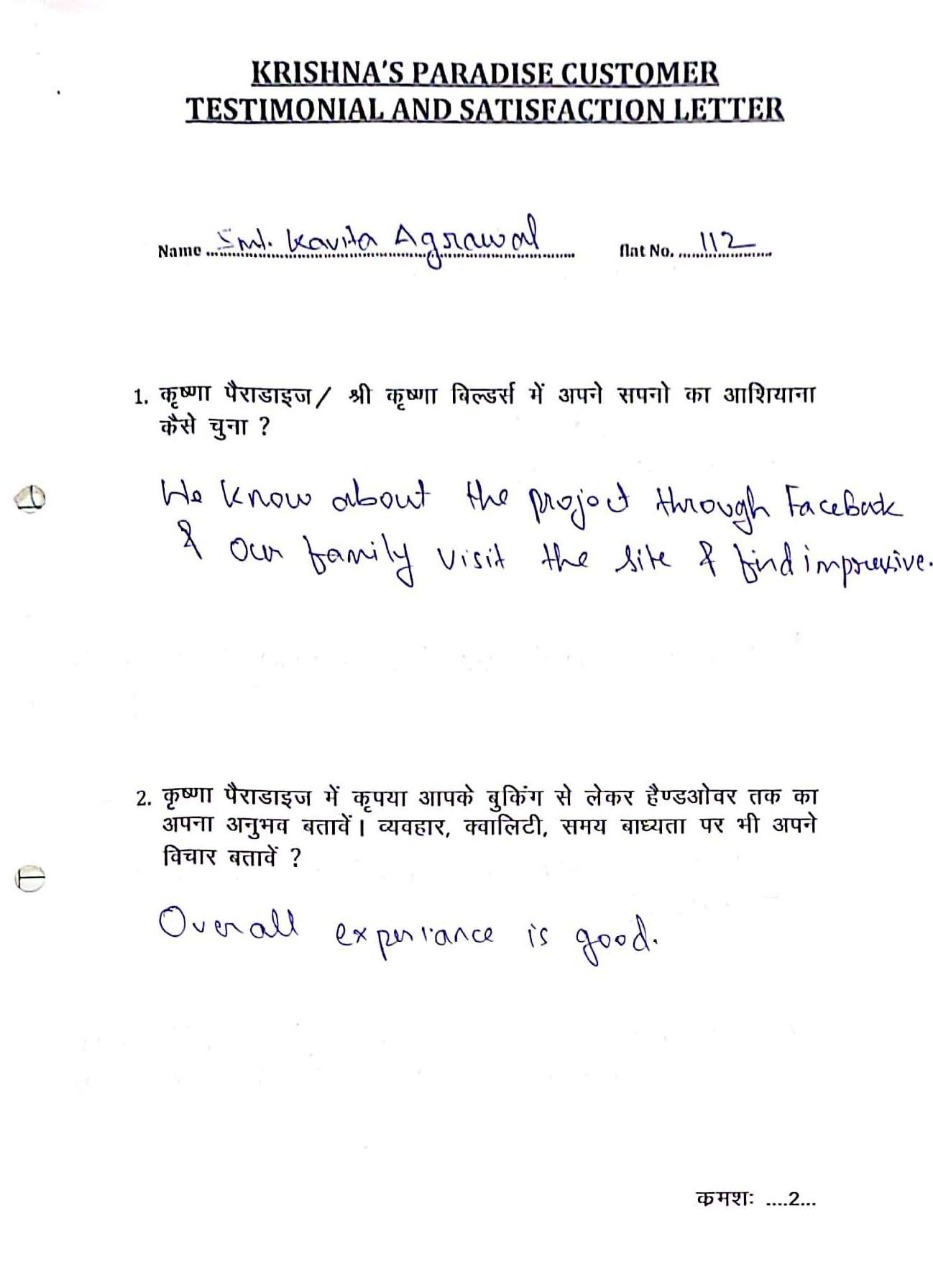 KRISHNA'S PARADISE CUSTOMER
TESTIMONIAL AND SATISFACTION LETTER
Name ...Smt. Kavita Agrawal... flat No. ...112...
1. कृष्णा पैराडाइज / श्री कृष्णा बिल्डर्स में अपने सपनो का आशियाना
कैसे चुना ?
We know about the project through FaceBook
& our family visit the site & find impressive.
2. कृष्णा पैराडाइज में कृपया आपके बुकिंग से लेकर हैण्डओवर तक का
अपना अनुभव बतावें। व्यवहार, क्वालिटी, समय बाध्यता पर भी अपने
विचार बतावें ?
Overall experiance is good.
कमशः ....2...